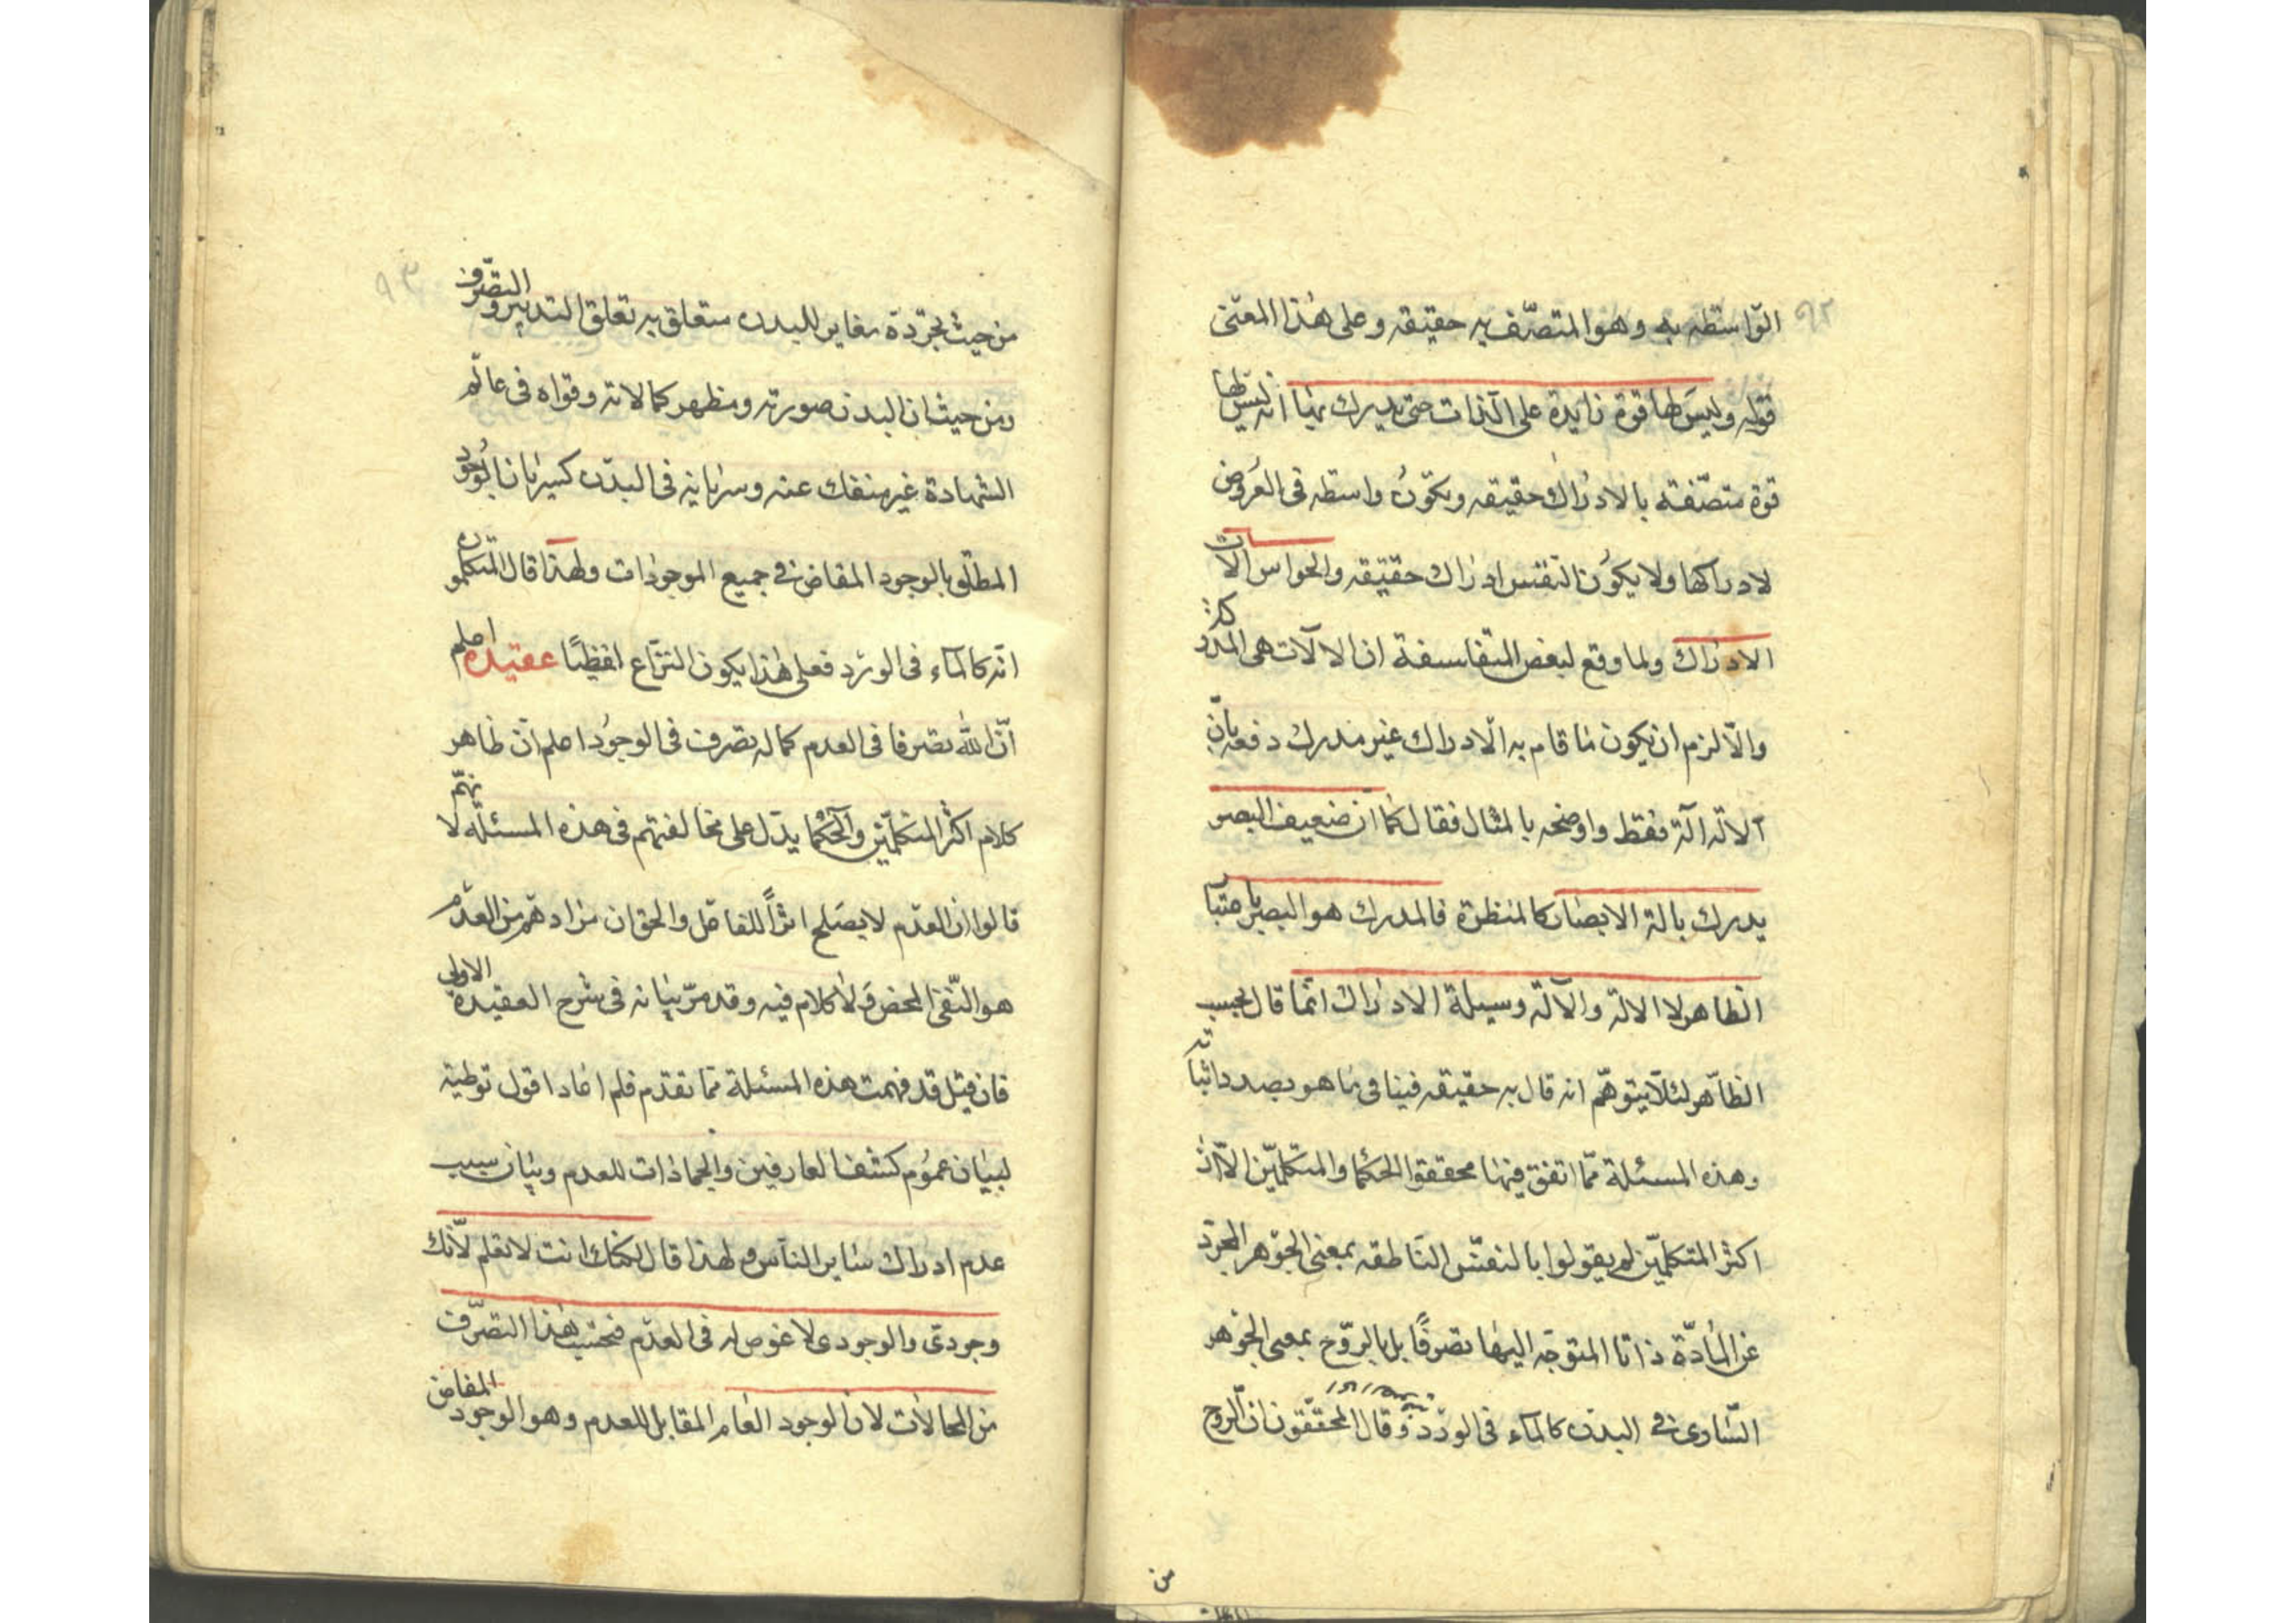 ٩٢
الواسطه به وهو المتصف به حقيقه وعلى هذا المعنى
قوله وليس لها قوة زايدة على الذات حتى يدرك بها انه ليس لها
قوة متصفة بالادراك حقيقه ويكون واسطه فى العروض
لادراكها ولا يكون النفس ادراك حقيقه والحواس الات
الادراك ولما وقع لبعض المتفلسفة ان الالات هى المدركة
والا لزم ان يكون ما قام به الادراك غير مدرك دفعه بان
الالة الة فقط واوضحه بالمثال فقال كما ان ضعيف البصر
يدرك بالة الابصار كالمنظرة فالمدرك هو البصير باعتبار
الظاهر لا الالة والآلة وسيلة الادراك انما قال بحسب
الظاهر لئلا يتوهم انه قال به حقيقه فينافى ما هو بصدد اثباته
وهذه المسئلة مما اتفق فيها محققوا الحكما والمتكلمين الا ان
اكثر المتكلمين لم يقولوا بالنفس الناطقه بمعنى الجوهر المجرد
عن المادة ذاتا المتوجه اليها تصرفا بل بالروح بمعنى الجوهر
السارى فى البدن كالماء فى الورد وقال المحققون ان الروح
من
٩٣
من حيث تجرده مغاير للبدن متعلق به تعلق التدبير والتصرف
ومن حيث ان البدن صورته ومظهر كمالاته وقواه فى عالم
الشهادة غير منفك عنه وسريانه فى البدن كسريان الوجود
المطلق بالوجود المفاض فى جميع الموجودات ولهذا قال المتكلمون
انه كالماء فى الورد فعلى هذا يكون النزاع لفظيا عقيده اعلم
ان لله تصرفا فى العدم كما له تصرف فى الوجود اعلم ان ظاهر
كلام اكثر المتكلمين والحكما يدل على مخالفتهم فى هذه المسئلة لانهم
قالوا ان العدم لا يصلح اثرا للفاعل والحق ان مرادهم من العدم
هو النفى المحض ولا كلام فيه وقد مر بيانه فى شرح العقيدة الاولى
فان قيل قد فهمت هذه المسئلة مما تقدم فلم اعاد اقول توطية
لبيان عموم كشف العارفين والجمادات للعدم وبيان سبب
عدم ادراك ساير الناس ولهذا قال لكنك انت لا تعلم لانك
وجودى والوجودى لا غوص له فى العدم فتحسب هذا التصرف
من المحالات لان الوجود العام المقابل للعدم وهو الوجود المفاض